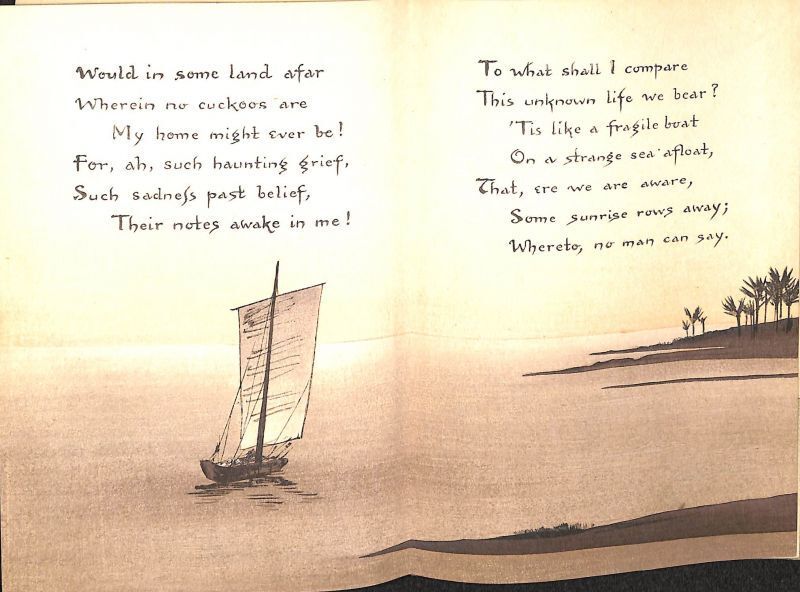 Would in some land afar
Wherein no cuckoos are
My home might ever be!
For, ah, such haunting grief,
Such sadness past belief,
Their notes awake in me!
To what shall I compare
This unknown life we bear?
'Tis like a fragile boat
On a strange sea afloat,
That, ere we are aware,
Some sunrise rows away;
Whereto, no man can say.